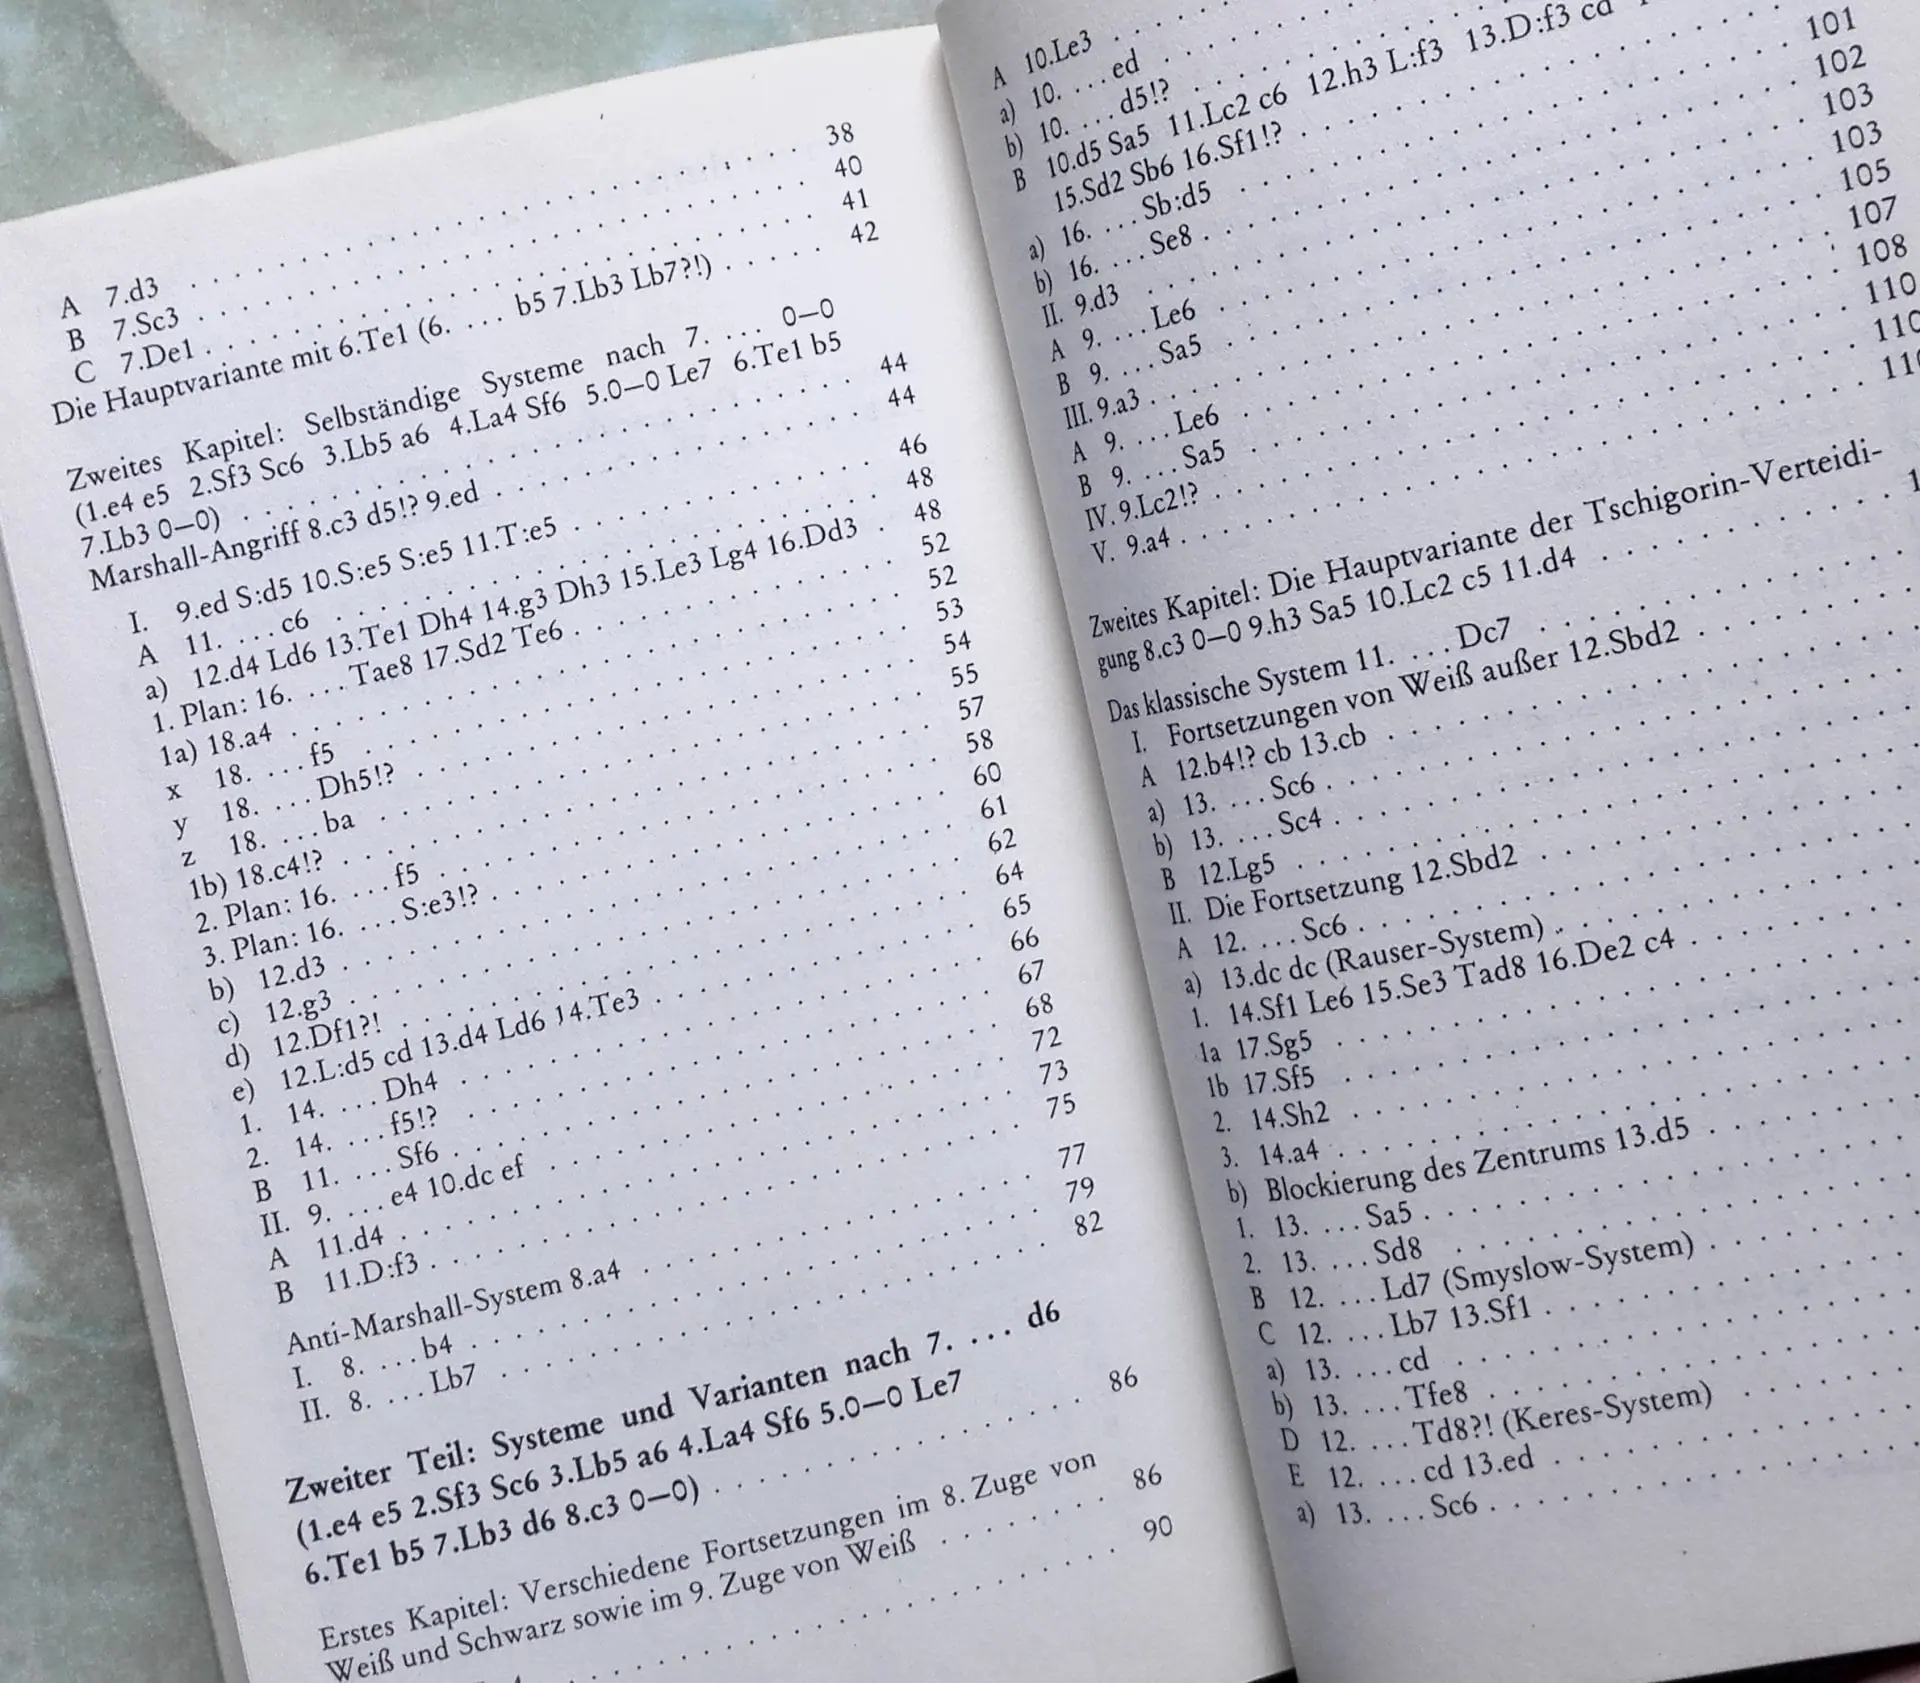 A 7.d3 . . . . . . . . . . 38
B 7.Sc3 . . . . . . . . . . 40
C 7.De1 . . . . . . . . . . 41
Die Hauptvariante mit 6.Te1 (6. . . . . b5 7.Lb3 Lb7?!) . . . . . 42
Zweites Kapitel: Selbständige Systeme nach 7. . . . . 0—0
(1.e4 e5 2.Sf3 Sc6 3.Lb5 a6 4.La4 Sf6 5.0—0 Le7 6.Te1 b5
7.Lb3 0—0) . . . . . . . . . . 44
Marshall-Angriff 8.c3 d5!? 9.ed . . . . . . . . . . 44
I. 9.ed S:d5 10.S:e5 S:e5 11.T:e5 . . . . . . . . . . 46
A 11. . . . . c6 . . . . . . . . . . 48
a) 12.d4 Ld6 13.Te1 Dh4 14.g3 Dh3 15.Le3 Lg4 16.Dd3 . 48
1. Plan: 16. . . . . Tae8 17.Sd2 Te6 . . . . . . . . . . 52
1a) 18.a4 . . . . . . . . . . 52
x 18. . . . . f5 . . . . . . . . . . 53
y 18. . . . . Dh5!? . . . . . . . . . . 54
z 18. . . . . ba . . . . . . . . . . 55
1b) 18.c4!? . . . . . . . . . . 57
2. Plan: 16. . . . . f5 . . . . . . . . . . 58
3. Plan: 16. . . . . S:e3!? . . . . . . . . . . 60
b) 12.d3 . . . . . . . . . . 61
c) 12.g3 . . . . . . . . . . 62
d) 12.Df1?! . . . . . . . . . . 64
e) 12.L:d5 cd 13.d4 Ld6 14.Te3 . . . . . . . . . . 65
1. 14. . . . . Dh4 . . . . . . . . . . 66
2. 14. . . . . f5!? . . . . . . . . . . 67
B 11. . . . . Sf6 . . . . . . . . . . 68
II. 9. . . . . e4 10.dc ef . . . . . . . . . . 72
A 11.d4 . . . . . . . . . . 73
B 11.D:f3 . . . . . . . . . . 75
Anti-Marshall-System 8.a4 . . . . . . . . . . 77
I. 8. . . . . b4 . . . . . . . . . . 79
II. 8. . . . . Lb7 . . . . . . . . . . 82
Zweiter Teil: Systeme und Varianten nach 7. . . . . d6
(1.e4 e5 2.Sf3 Sc6 3.Lb5 a6 4.La4 Sf6 5.0—0 Le7
6.Te1 b5 7.Lb3 d6 8.c3 0—0) . . . . . . . . . . 86
Erstes Kapitel: Verschiedene Fortsetzungen im 8. Zuge von
Weiß und Schwarz sowie im 9. Zuge von Weiß . . . . . . 86
. . . . . . . . . . 90
A 10.Le3 . . . . . . . . . .
a) 10. . . . . ed . . . . . . . . . .
b) 10. . . . . d5!? . . . . . . . . . .
B 10.d5 Sa5 11.Lc2 c6 12.h3 L:f3 13.D:f3 cd
15.Sd2 Sb6 16.Sf1!? . . . . . . . . . .
a) 16. . . . . Sb:d5 . . . . . . . . . . 101
b) 16. . . . . Se8 . . . . . . . . . . 102
II. 9.d3 . . . . . . . . . . 103
A 9. . . . . Le6 . . . . . . . . . . 103
B 9. . . . . Sa5 . . . . . . . . . . 105
III. 9.a3 . . . . . . . . . . 107
A 9. . . . . Le6 . . . . . . . . . . 108
B 9. . . . . Sa5 . . . . . . . . . . 110
IV. 9.Lc2!? . . . . . . . . . . 110
V. 9.a4 . . . . . . . . . .
Zweites Kapitel: Die Hauptvariante der Tschigorin-Verteidi-
gung 8.c3 0—0 9.h3 Sa5 10.Lc2 c5 11.d4 . . . . . . . . . .
Das klassische System 11. . . . . Dc7 . . . . . . . . . .
I. Fortsetzungen von Weiß außer 12.Sbd2 . . . . . . . . . .
A 12.b4!? cb 13.cb . . . . . . . . . .
a) 13. . . . . Sc6 . . . . . . . . . .
b) 13. . . . . Sc4 . . . . . . . . . .
B 12.Lg5 . . . . . . . . . .
II. Die Fortsetzung 12.Sbd2 . . . . . . . . . .
A 12. . . . . Sc6 . . . . . . . . . .
a) 13.dc dc (Rauser-System) . . . . . . . . . .
1. 14.Sf1 Le6 15.Se3 Tad8 16.De2 c4 . . . . . . . . . .
1a 17.Sg5 . . . . . . . . . .
1b 17.Sf5 . . . . . . . . . .
2. 14.Sh2 . . . . . . . . . .
3. 14.a4 . . . . . . . . . .
b) Blockierung des Zentrums 13.d5 . . . . . . . . . .
1. 13. . . . . Sa5 . . . . . . . . . .
2. 13. . . . . Sd8 . . . . . . . . . .
B 12. . . . . Ld7 (Smyslow-System) . . . . . . . . . .
C 12. . . . . Lb7 13.Sf1 . . . . . . . . . .
a) 13. . . . . cd . . . . . . . . . .
b) 13. . . . . Tfe8 . . . . . . . . . .
D 12. . . . . Td8?! (Keres-System) . . . . . . . . . .
E 12. . . . . cd 13.ed . . . . . . . . . .
a) 13. . . . . Sc6 . . . . . . . . . .